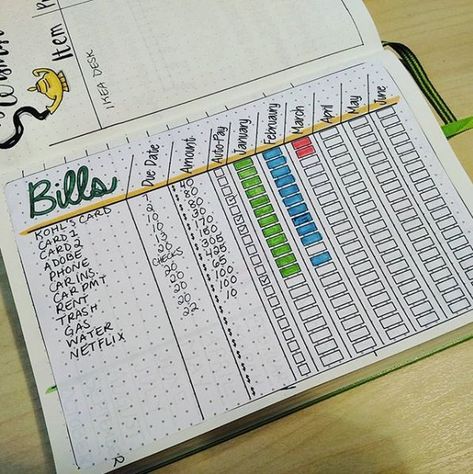 Item
IKEA DESK
Bills
Due Date
Amount
Auto-Pay
January
February
March
April
May
June
KOHL'S CARD $
CARD 1 $ 80
CARD 2 10 $ 80
ADOBE 10 $ 30
PHONE $ 170
CAR INS. 20 $ 150
CAR PMT CHECKS $ 305
RENT 20 $ 425
TRASH 20 $ 65
GAS 20 $ 100
WATER 20 $ 100
NETFLIX 22 $ 10
$
$
$
$
$
$